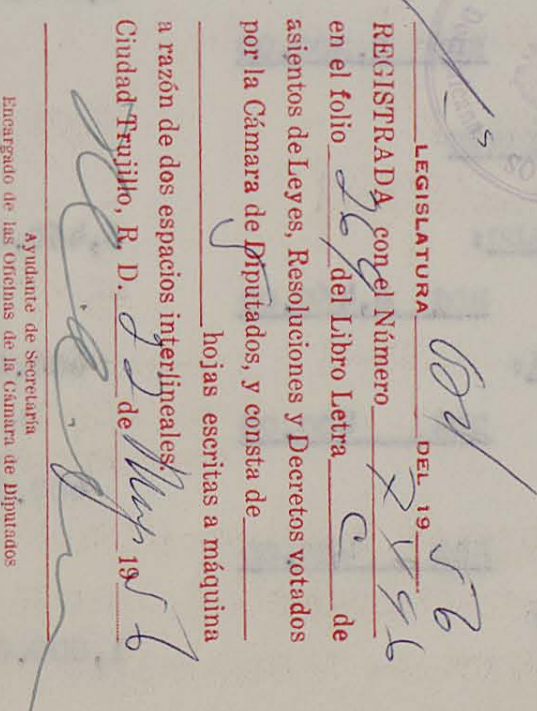 1ª LEGISLATURA Ord DEL 1956
REGISTRADA con el Número
en el folio 264 del Libro Letra C de
asientos de Leyes, Resoluciones y Decretos votados
por la Cámara de Diputados, y consta de
hojas escritas a máquina
a razón de dos espacios interlineales.
Ciudad Trujillo, R. D. 22 de Mayo 1956
Ayudante de Secretaría
Encargado de las Oficinas de la Cámara de Diputados